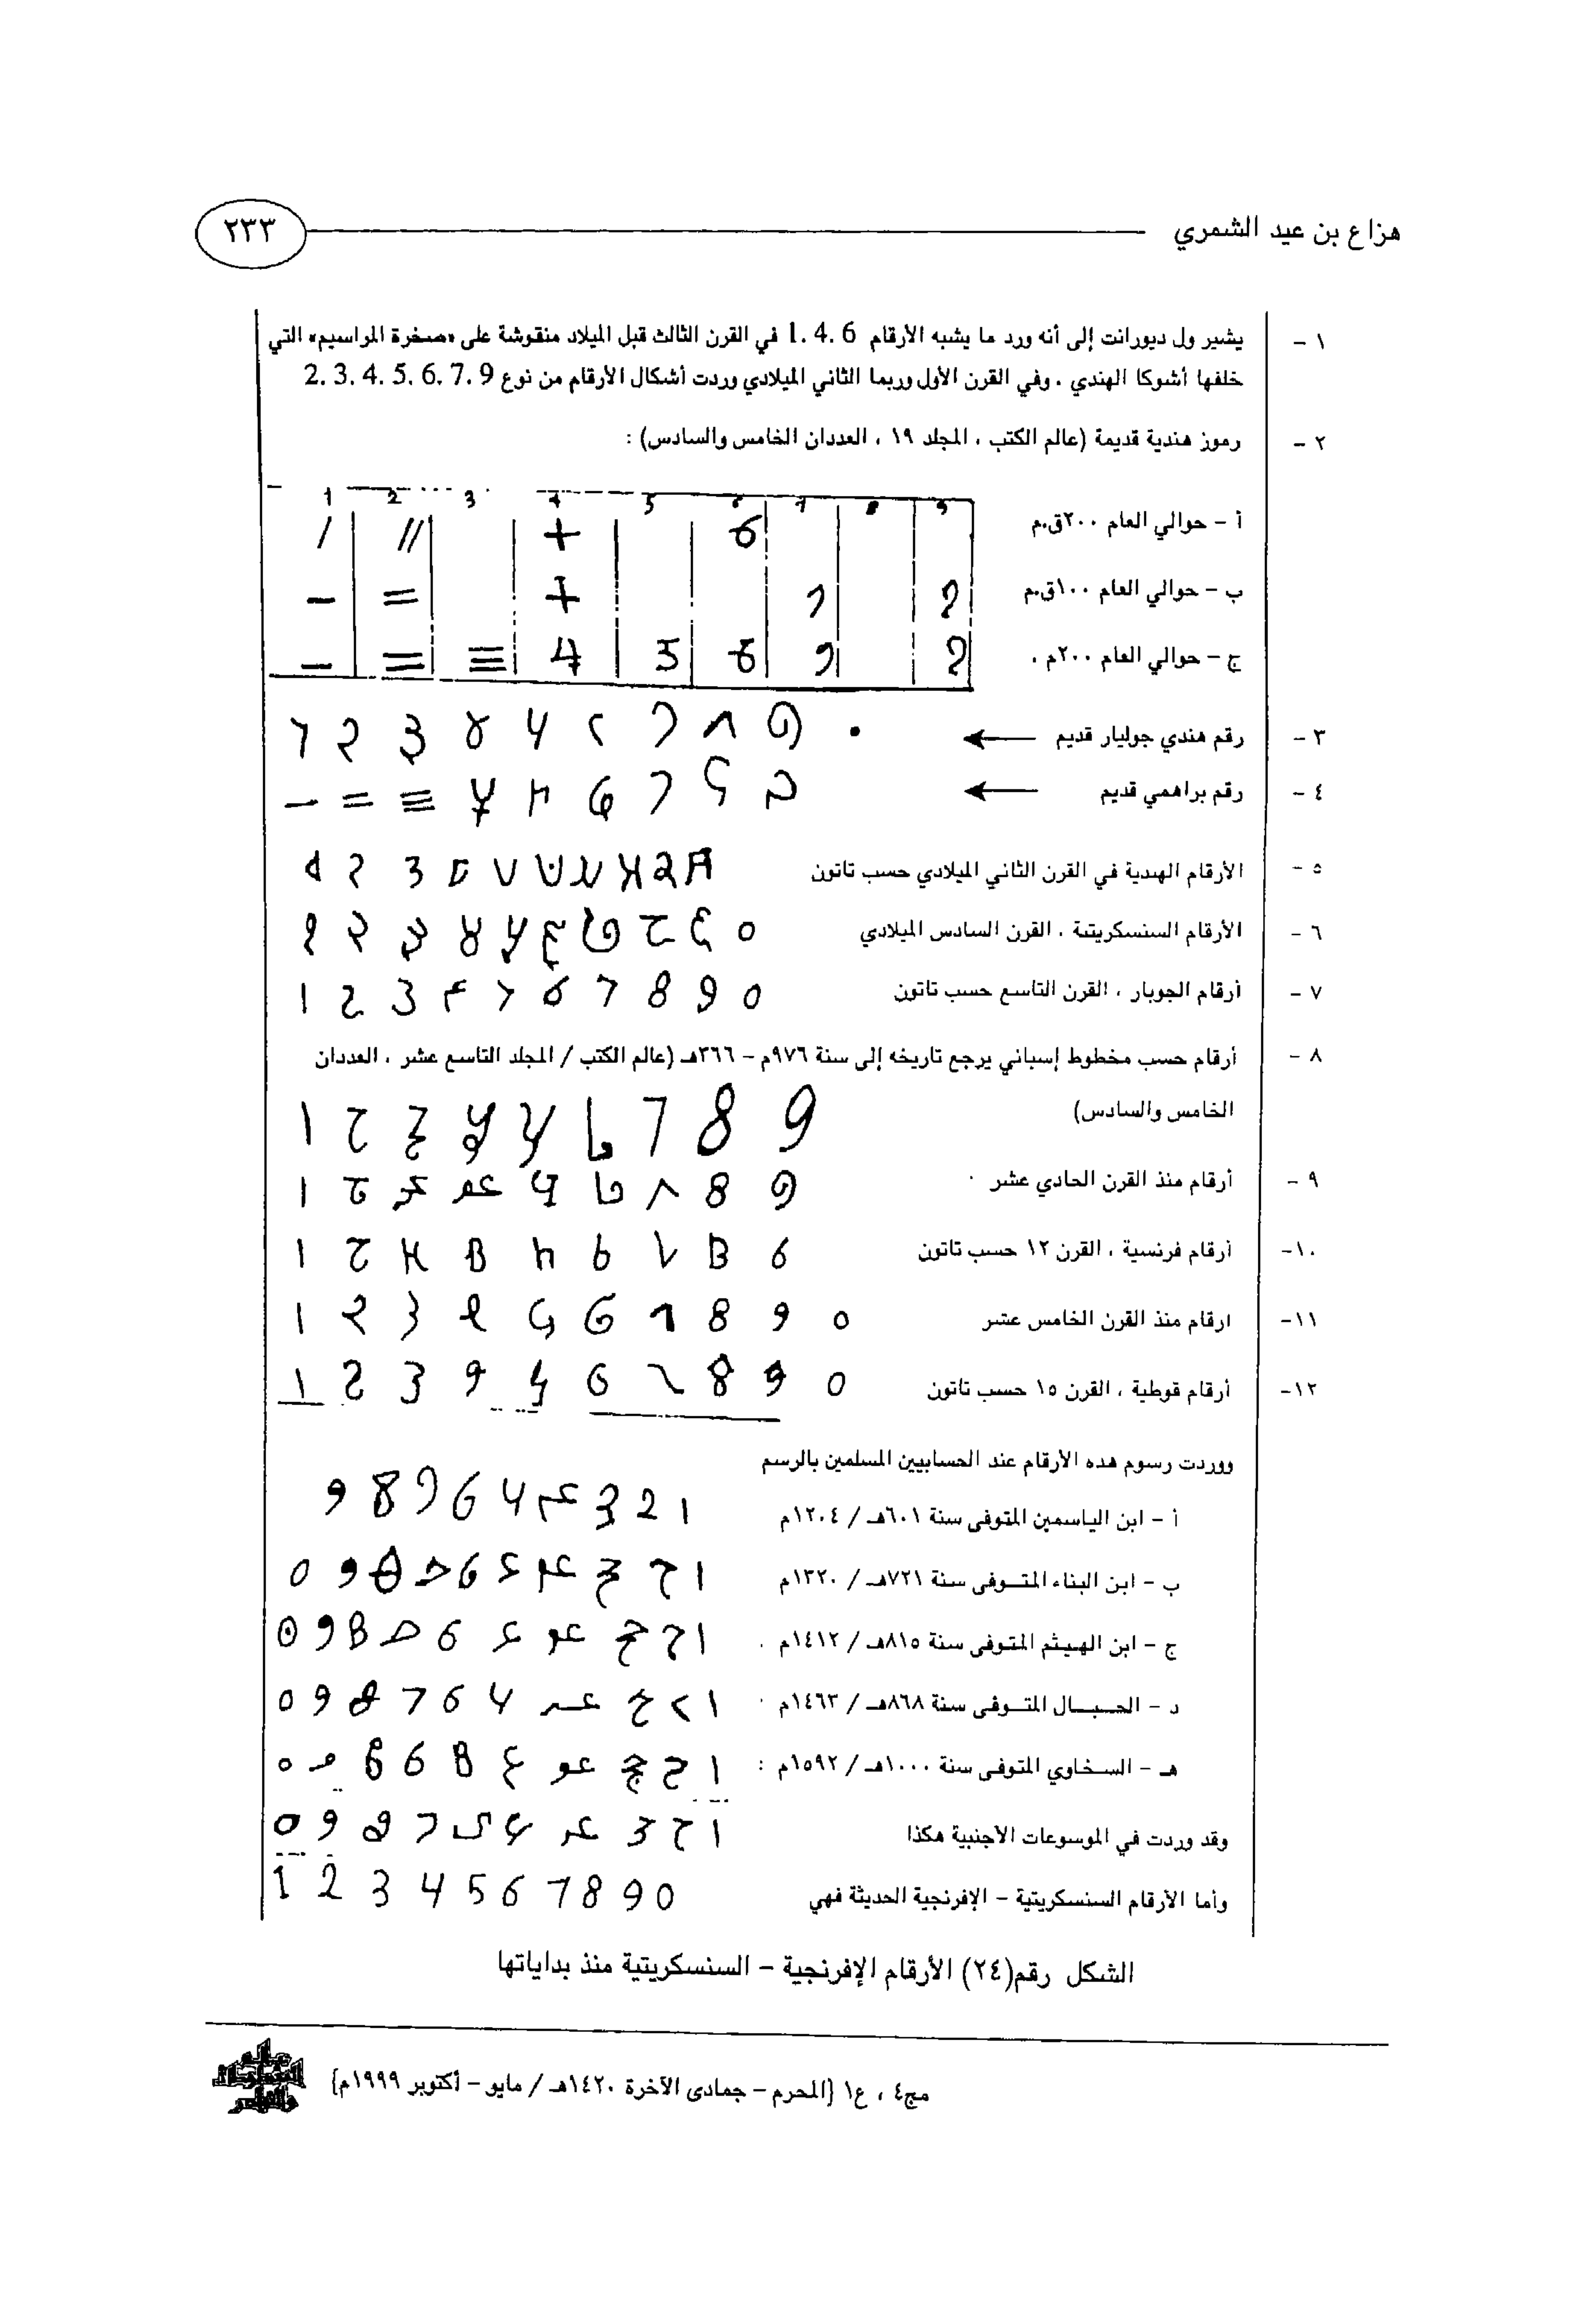 هزاع بن عيد الشمري
٢٣٣
١ - يشير ول ديورانت إلى أنه ورد ما يشبه الأرقام 1. 4. 6 في القرن الثالث قبل الميلاد منقوشة على «صخرة المراسيم» التي
خلفها أشوكا الهندي . وفي القرن الأول وربما الثاني الميلادي وردت أشكال الأرقام من نوع 2. 3. 4. 5. 6. 7. 9
٢ - رموز هندية قديمة (عالم الكتب ، المجلد ١٩ ، العددان الخامس والسادس) :
1 2 3 4 5 6 7 8 9
أ - حوالي العام ٢٠٠ق.م
ب - حوالي العام ١٠٠ق.م
ج - حوالي العام ٢٠٠م .
٣ - رقم هندي جوليار قديم
٤ - رقم براهمي قديم
٥ - الأرقام الهندية في القرن الثاني الميلادي حسب تاتون
٦ - الأرقام السنسكريتية ، القرن السادس الميلادي
٧ - أرقام الجوبار ، القرن التاسع حسب تاتون
٨ - أرقام حسب مخطوط إسباني يرجع تاريخه إلى سنة ٩٧٦م - ٣٦٦هـ (عالم الكتب / المجلد التاسع عشر ، العددان
الخامس والسادس)
٩ - أرقام منذ القرن الحادي عشر
١٠- أرقام فرنسية ، القرن ١٢ حسب تاتون
١١- ارقام منذ القرن الخامس عشر
١٢- أرقام قوطية ، القرن ١٥ حسب تاتون
ووردت رسوم هذه الأرقام عند الحسابيين المسلمين بالرسم
أ - ابن الياسمين المتوفى سنة ٦٠١هـ / ١٢٠٤م
ب - ابن البناء المتوفى سنة ٧٢١هـ / ١٣٢٠م
ج - ابن الهيثم المتوفى سنة ٨١٥هـ / ١٤١٢م .
د - الحبال المتوفى سنة ٨٦٨هـ / ١٤٦٣م
هـ - السخاوي المتوفى سنة ١٠٠٠هـ / ١٥٩٢م :
وقد وردت في الموسوعات الأجنبية هكذا
وأما الأرقام السنسكريتية - الإفرنجية الحديثة فهي 1 2 3 4 5 6 7 8 9 0
الشكل رقم(٢٤) الأرقام الإفرنجية - السنسكريتية منذ بداياتها
مج٤ ، ع١ {المحرم - جمادى الآخرة ١٤٢٠هـ / مايو - أكتوبر ١٩٩٩م}